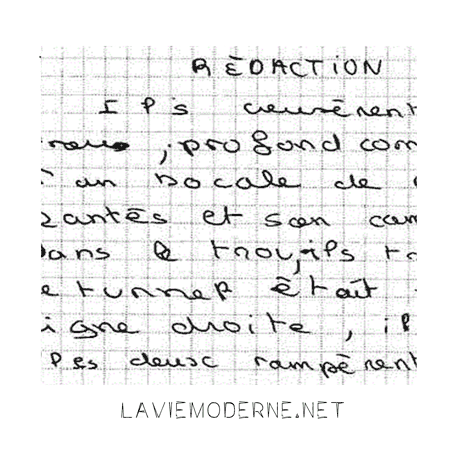 RÉDACTION
Ils creusèrent
, profond com
un bocale de
et son cam
dans le trou, ils
e tunnel était
igne droite, il
les deux rampèrent
LAVIEMODERNE.NET